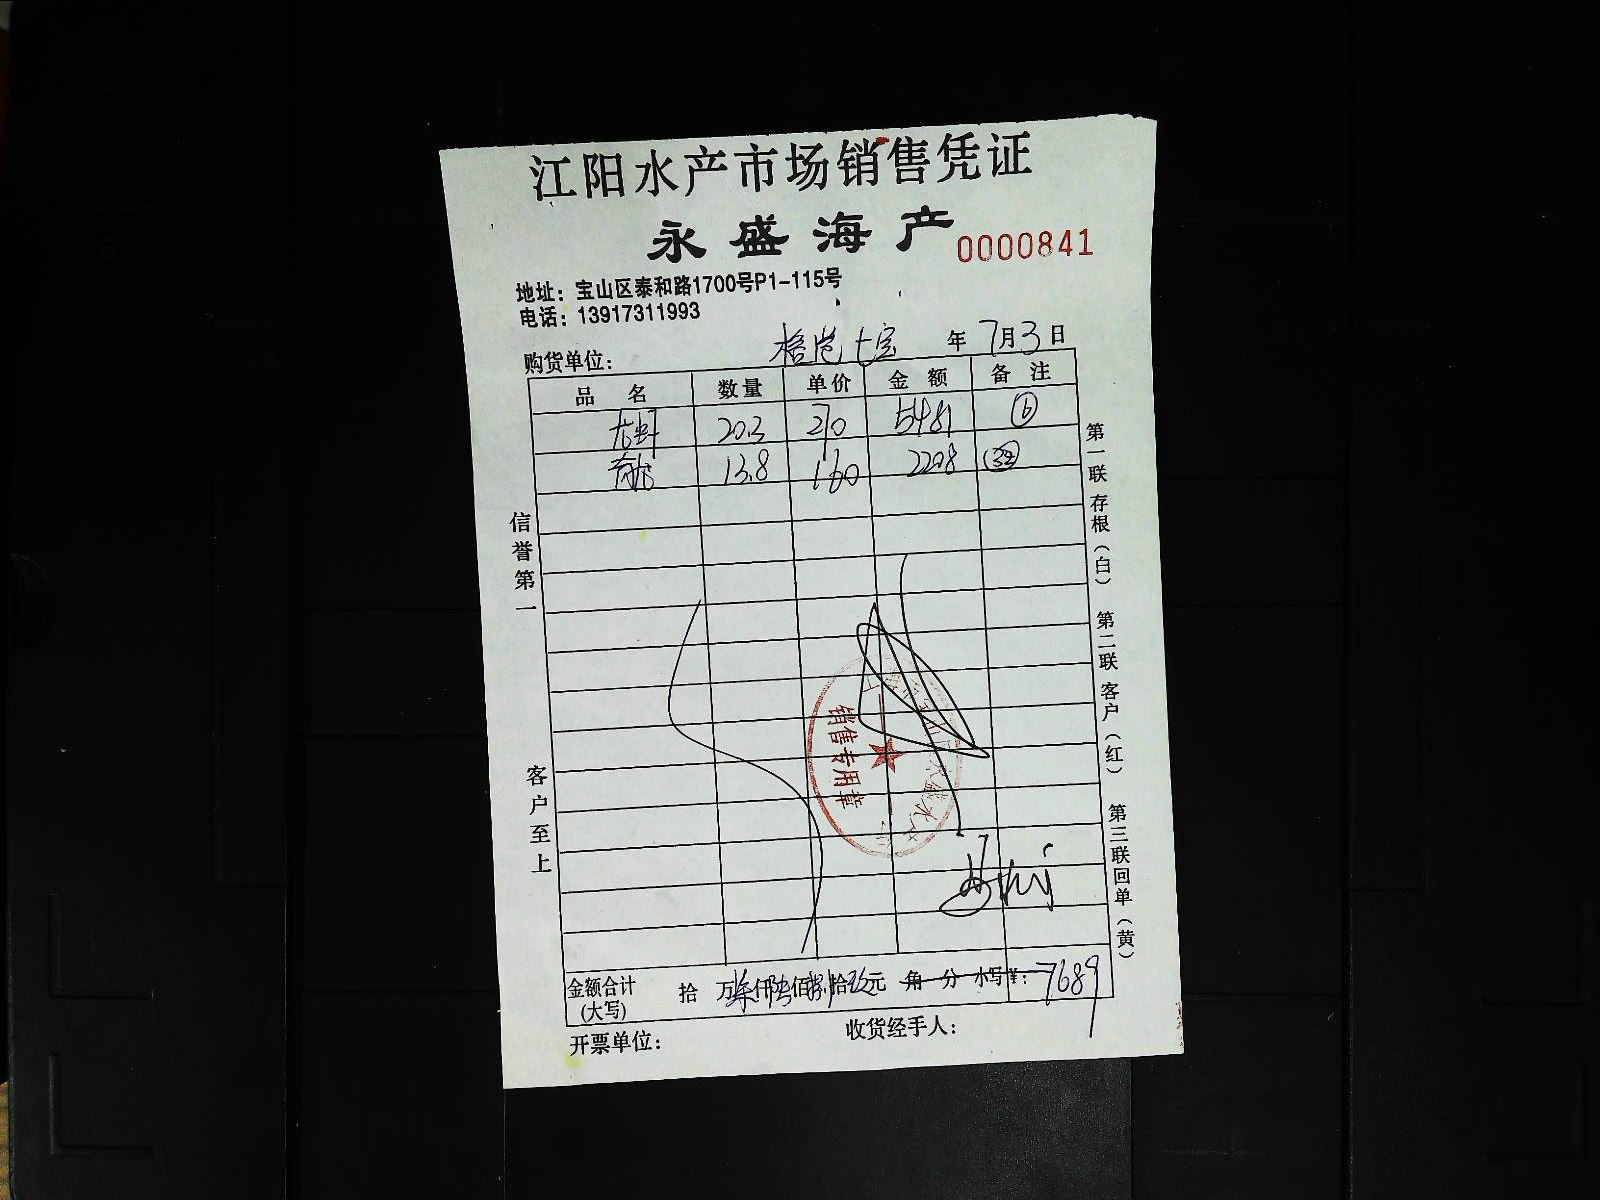 江阳水产市场销售凭证
永盛海产 0000841
地址：宝山区泰和路1700号P1-115号
电话：13917311993
购货单位： 年7月3日
品名 数量 单价 金额 备注
龙虾 20.3 270 5481 ⑥
13.8 160 2208 ㉜
信誉第一
客户至上
第一联 存根（白） 第二联 客户（红） 第三联 回单（黄）
销售专用章
金额合计(大写) 拾 万柒仟陆佰捌拾玖元 角 分 小写¥：7689
开票单位： 收货经手人：